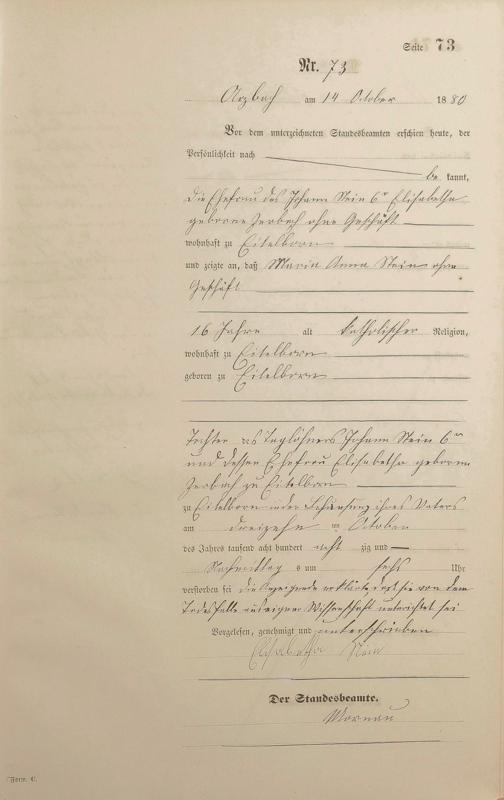 Seite 73
Nr. 73
Arzbach am 14 October 1880
Vor dem unterzeichneten Standesbeamten erschien heute, der
Persönlichkeit nach
be kannt,
die Ehefrau des Johann Stein 6r Elisabetha
geborene Zerbach ohne Geschäft
wohnhaft zu Eitelborn
und zeigte an, daß Maria Anna Stein ohne
Geschäft
16 Jahre alt katholischer Religion,
wohnhaft zu Eitelborn
geboren zu Eitelborn
Tochter des Taglöhners Johann Stein 6r
und dessen Ehefrau Elisabetha geborene
Zerbach zu Eitelborn
zu Eitelborn in der Behausung ihres Vaters
am dreizehn ten October
des Jahres tausend acht hundert acht zig und
Nachmittag s um sechs Uhr
verstorben sei die Anzeigende erklärte daß sie von dem
Todesfalle aus eigener Wissenschaft unterrichtet sei
Vorgelesen, genehmigt und unterschrieben
Elisabetha Stein
Der Standesbeamte.
Form. C.